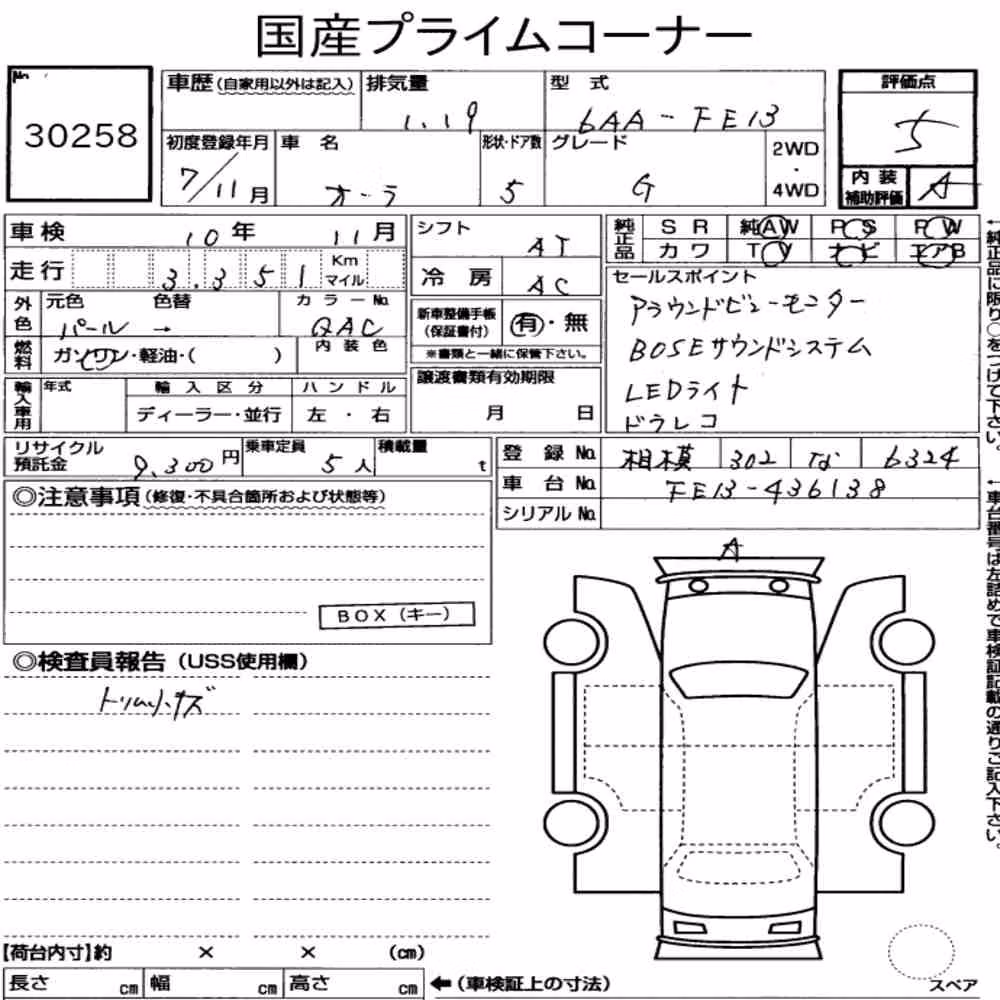 国産プライムコーナー
No.
30258
車歴(自家用以外は記入) 排気量 1.19 型式 6AA-FE13
初度登録年月 7/11月 車名 オーラ 形状・ドア数 5 グレード G 2WD・4WD
評価点 5
内装補助評価 A
車検 10年 11月
走行 3.351 Km マイル
外色 元色 パール 色替 → カラーNo. QAC
燃料 ガソリン・軽油・( ) 内装色
輸入車用 年式 輸入区分 ディーラー・並行 ハンドル 左・右
シフト AT
冷房 AC
新車整備手帳(保証書付) 有・無
※書類と一緒に保管下さい。
譲渡書類有効期限 月 日
純正品 SR 純AW PS PW
カワ TV ナビ エアB
セールスポイント
アラウンドビューモニター
BOSEサウンドシステム
LEDライト
ドラレコ
←純正品に限り○をつけて下さい。
リサイクル預託金 9,300円 乗車定員 5人 積載量 t
登録No. 相模 302 な 6324
車台No. FE13-436138
シリアルNo.
←車台番号は左詰めで車検証記載の通りご記入下さい。
◎注意事項(修復・不具合箇所および状態等)
BOX(キー)
A
◎検査員報告(USS使用欄)
トリム小キズ
【荷台内寸】約 × × (cm)
長さ cm 幅 cm 高さ cm ←(車検証上の寸法)
スペア